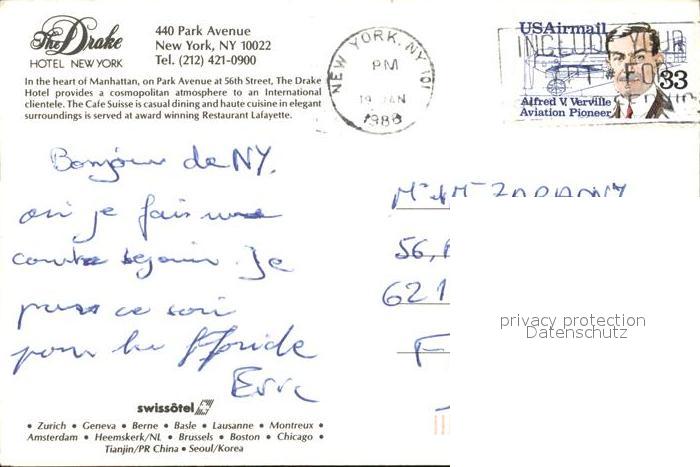 The Drake
HOTEL NEW YORK
440 Park Avenue
New York, NY 10022
Tel. (212) 421-0900
In the heart of Manhattan, on Park Avenue at 56th Street, The Drake
Hotel provides a cosmopolitan atmosphere to an International
clientele. The Cafe Suisse is casual dining and haute cuisine in elegant
surroundings is served at award winning Restaurant Lafayette.
NEW YORK, NY 101
PM
19 JAN
1988
USAirmail
INCLUDE YOUR
33
Alfred V. Verville
Aviation Pioneer
Bonjour de NY,
où je fais une
courte séjour. Je
pars ce soir
pour la Floride
Eric
56,
621
F
privacy protection
Datenschutz
swissôtel
• Zurich • Geneva • Berne • Basle • Lausanne • Montreux •
Amsterdam • Heemskerk/NL • Brussels • Boston • Chicago •
Tianjin/PR China • Seoul/Korea